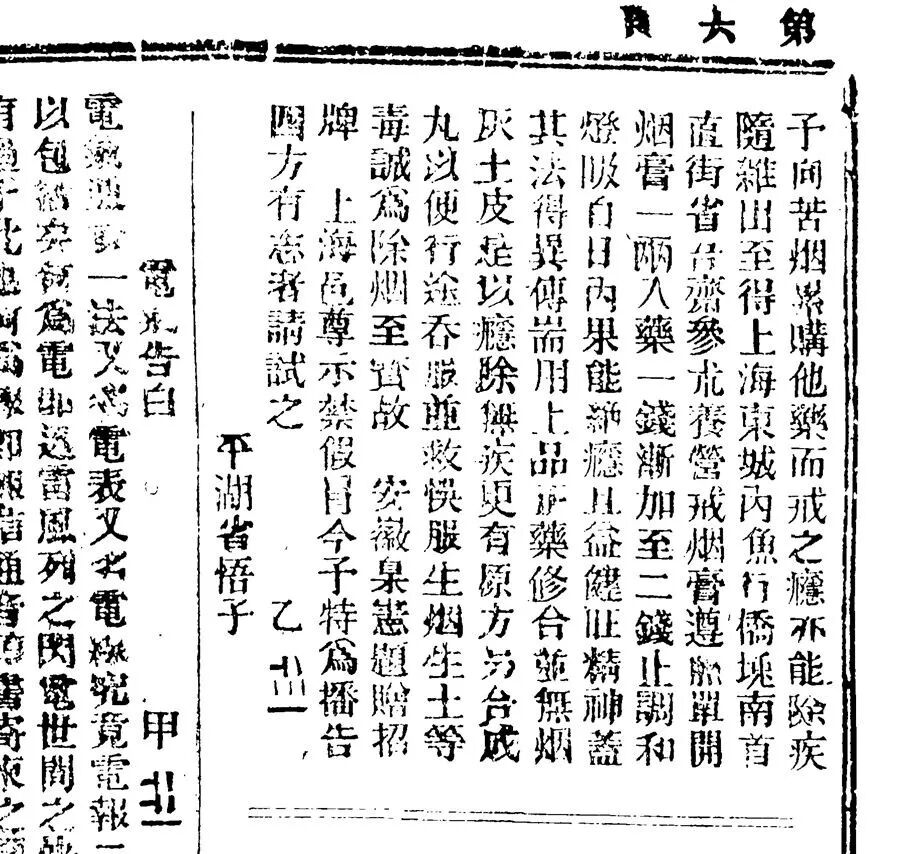 第六頁
予向苦烟累購他藥而戒之癮亦能除疾
隨雜出至得上海東城內魚行僑堍南首
直街省吾齋參朮養營戒烟膏遵照單開
烟膏一兩入藥一錢漸加至二錢止調和
燈吸百日內果能絶癮且益健旺精神蓋
其法得異傳耑用上品正藥修合並無烟
灰土皮是以癮除無疾更有原方另合成
丸以便行途吞服並救悞服生烟生土等
毒誠爲除烟至寳故 安徽臬憲題贈招
牌 上海邑尊示禁假冒今予特爲播告
四方有志者請試之 乙
平湖省悟子
電氣告白 甲
電氣 一法又爲電表又名電線究竟電報
以包 爲電 迅雷風列之閃電世間之
有 寄來之